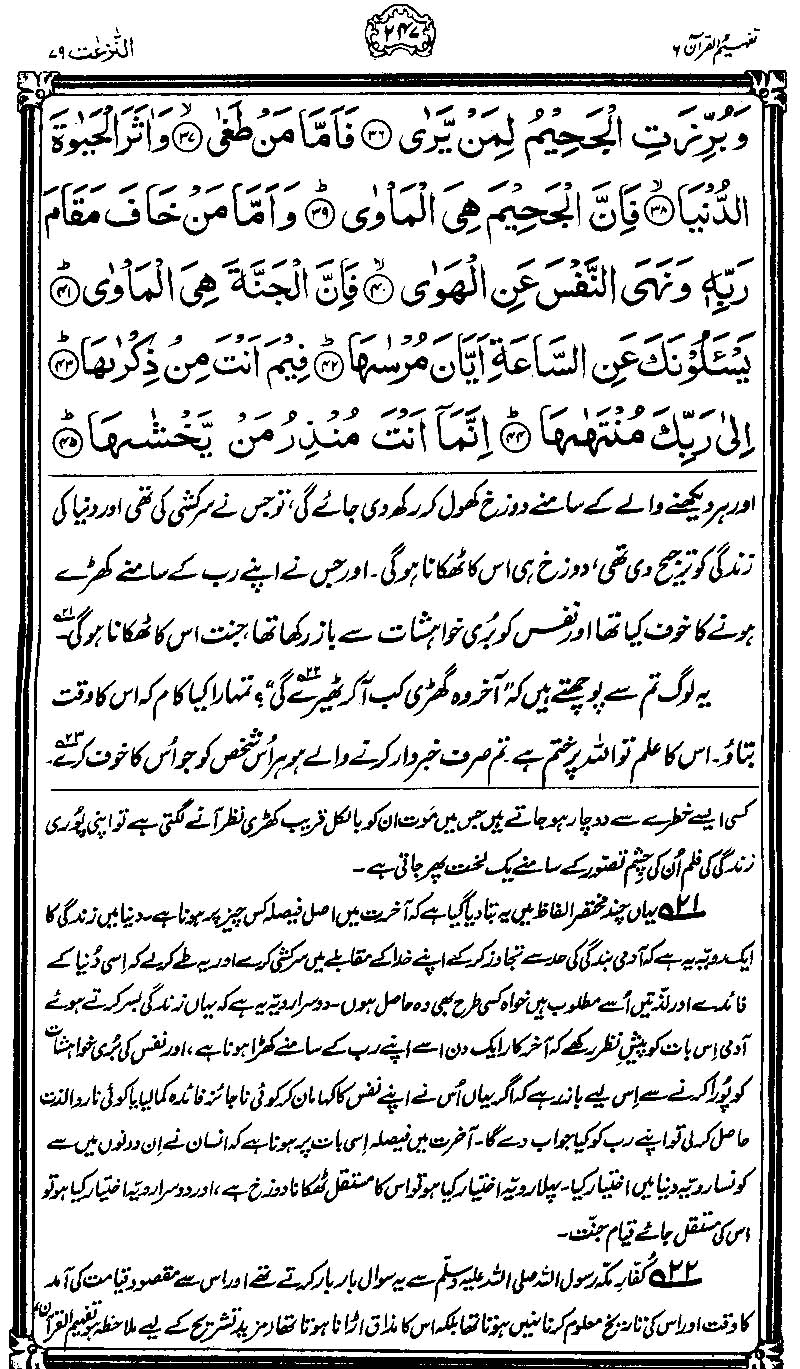 تفہیم القرآن ۶
۲۴۷
النّٰزعٰت ۷۹
وَبُرِّزَتِ الْجَحِيْمُ لِمَنْ يَّرٰى ۳۶ فَاَمَّا مَنْ طَغٰى ۳۷ وَاٰثَرَ الْحَيٰوةَ
الدُّنْيَا ۳۸ فَاِنَّ الْجَحِيْمَ هِيَ الْمَاْوٰى ۳۹ وَاَمَّا مَنْ خَافَ مَقَامَ
رَبِّهٖ وَنَهَى النَّفْسَ عَنِ الْهَوٰى ۴۰ فَاِنَّ الْجَنَّةَ هِيَ الْمَاْوٰى ۴۱
يَسْـَٔلُوْنَكَ عَنِ السَّاعَةِ اَيَّانَ مُرْسٰىهَا ۴۲ فِيْمَ اَنْتَ مِنْ ذِكْرٰىهَا ۴۳
اِلٰى رَبِّكَ مُنْتَهٰىهَا ۴۴ اِنَّمَآ اَنْتَ مُنْذِرُ مَنْ يَّخْشٰىهَا ۴۵
اور ہر دیکھنے والے کے سامنے دوزخ کھول کر رکھ دی جائے گی، تو جس نے سرکشی کی تھی اور دنیا کی
زندگی کو ترجیح دی تھی، دوزخ ہی اس کا ٹھکانا ہوگی۔ اور جس نے اپنے رب کے سامنے کھڑے
ہونے کا خوف کیا تھا اور نفس کو بُری خواہشات سے باز رکھا تھا، جنت اس کا ٹھکانا ہوگی۔ ۲۱
یہ لوگ تم سے پوچھتے ہیں کہ "آخر وہ گھڑی کب آ کر ٹھیرے گی"؟ ۲۲ تمہارا کیا کام کہ اس کا وقت
بتاؤ۔ اس کا علم تو اللہ پر ختم ہے۔ تم صرف خبردار کرنے والے ہو ہر اُس شخص کو جو اُس کا خوف کرے۔ ۲۳
کسی ایسے خطرے سے دوچار ہو جاتے ہیں جس میں موت ان کو بالکل قریب کھڑی نظر آنے لگتی ہے تو اپنی پُوری
زندگی کی فلم اُن کی چشمِ تصوّر کے سامنے یک لخت پھر جاتی ہے۔
۲۱ یہاں چند مختصر الفاظ میں یہ بتا دیا گیا ہے کہ آخرت میں اصل فیصلہ کس چیز پر ہونا ہے۔ دنیا میں زندگی کا
ایک رویّہ یہ ہے کہ آدمی بندگی کی حد سے تجاوز کر کے اپنے خدا کے مقابلے میں سرکشی کرے اور یہ طے کر لے کہ اِسی دُنیا کے
فائدے اور لذّتیں اُسے مطلوب ہیں خواہ کسی طرح بھی وہ حاصل ہوں۔ دوسرا رویّہ یہ ہے کہ یہاں زندگی بسر کرتے ہوئے
آدمی اِس بات کو پیشِ نظر رکھے کہ آخر کار ایک دن اسے اپنے رب کے سامنے کھڑا ہونا ہے، اور نفس کی بُری خواہشات
کو پُورا کرنے سے اِس لیے باز رہے کہ اگر یہاں اُس نے اپنے نفس کا کہا مان کر کوئی ناجائز فائدہ کما لیا یا کوئی ناروا لذت
حاصل کر لی تو اپنے رب کو کیا جواب دے گا۔ آخرت میں فیصلہ اِسی بات پر ہونا ہے کہ انسان نے اِن دونوں میں سے
کونسا رویّہ دنیا میں اختیار کیا۔ پہلا رویّہ اختیار کیا ہو تو اس کا مستقل ٹھکانا دوزخ ہے، اور دوسرا رویّہ اختیار کیا ہو تو
اس کی مستقل جائے قیام جنّت۔
۲۲ کُفّارِ مکّہ رسول اللہ صلی اللہ علیہ وسلّم سے یہ سوال بار بار کرتے تھے اور اس سے مقصود قیامت کی آمد
کا وقت اور اس کی تاریخ معلوم کرنا نہیں ہوتا تھا بلکہ اس کا مذاق اڑانا ہوتا تھا (مزید تشریح کے لیے ملاحظہ ہو تفہیم القرآن،